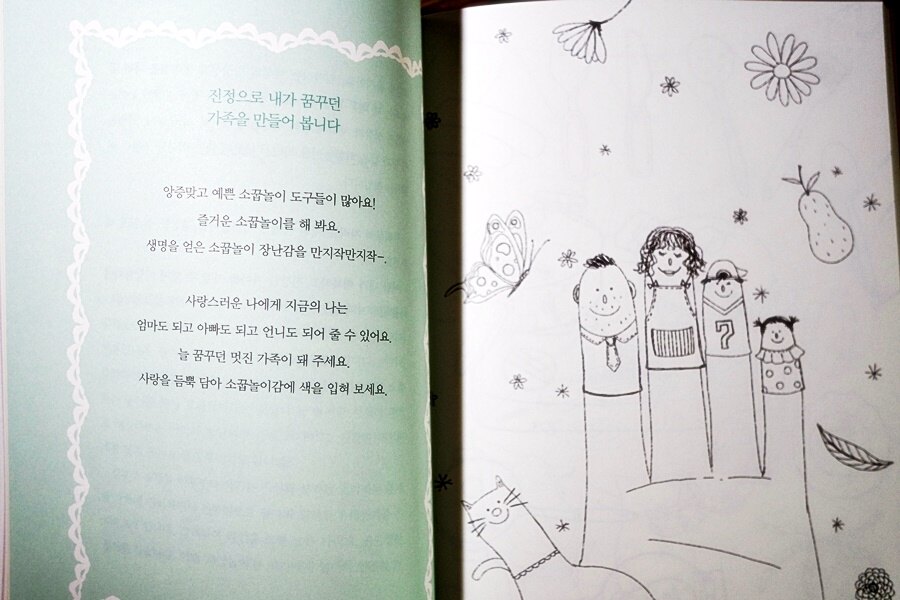 진정으로 내가 꿈꾸던
가족을 만들어 봅니다
앙증맞고 예쁜 소꿉놀이 도구들이 많아요!
즐거운 소꿉놀이를 해 봐요.
생명을 얻은 소꿉놀이 장난감을 만지작만지작~.
사랑스러운 나에게 지금의 나는
엄마도 되고 아빠도 되고 언니도 되어 줄 수 있어요.
늘 꿈꾸던 멋진 가족이 돼 주세요.
사랑을 듬뿍 담아 소꿉놀이감에 색을 입혀 보세요.
7